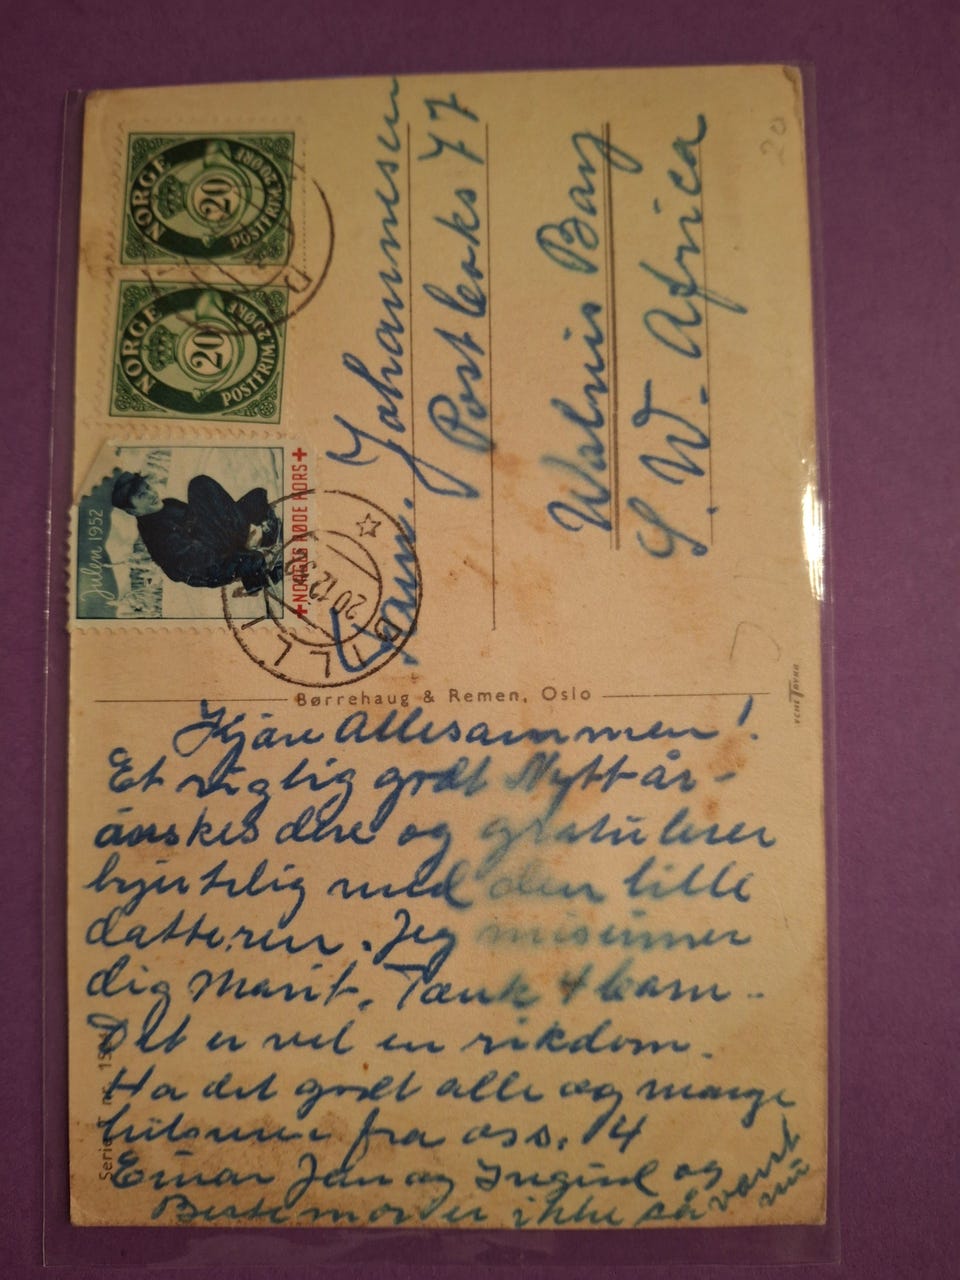 NORGE
20
POSTFRIM. 25 ØRE
NORGE
20
POSTFRIM. 25 ØRE
Julen 1952
+NORGES RØDE KORS+
20 12
Fam. Johannesen
Postboks 77
Walvis Bay
S. W. Africa
20
Børrehaug & Remen, Oslo
Kjære Allesammen!
Et riglig godt Nytt år -
ønskes dere og gratulerer
hjertelig med den lille
datteren. Jeg misunner
dig Marit. Tænk 4 barn -
Det er vel en rikdom.
Ha det godt alle og mange
hilsener fra oss. 4
Einar Jan og Ingerid og
Bestemor er ikke så
nu
Serie T nr.